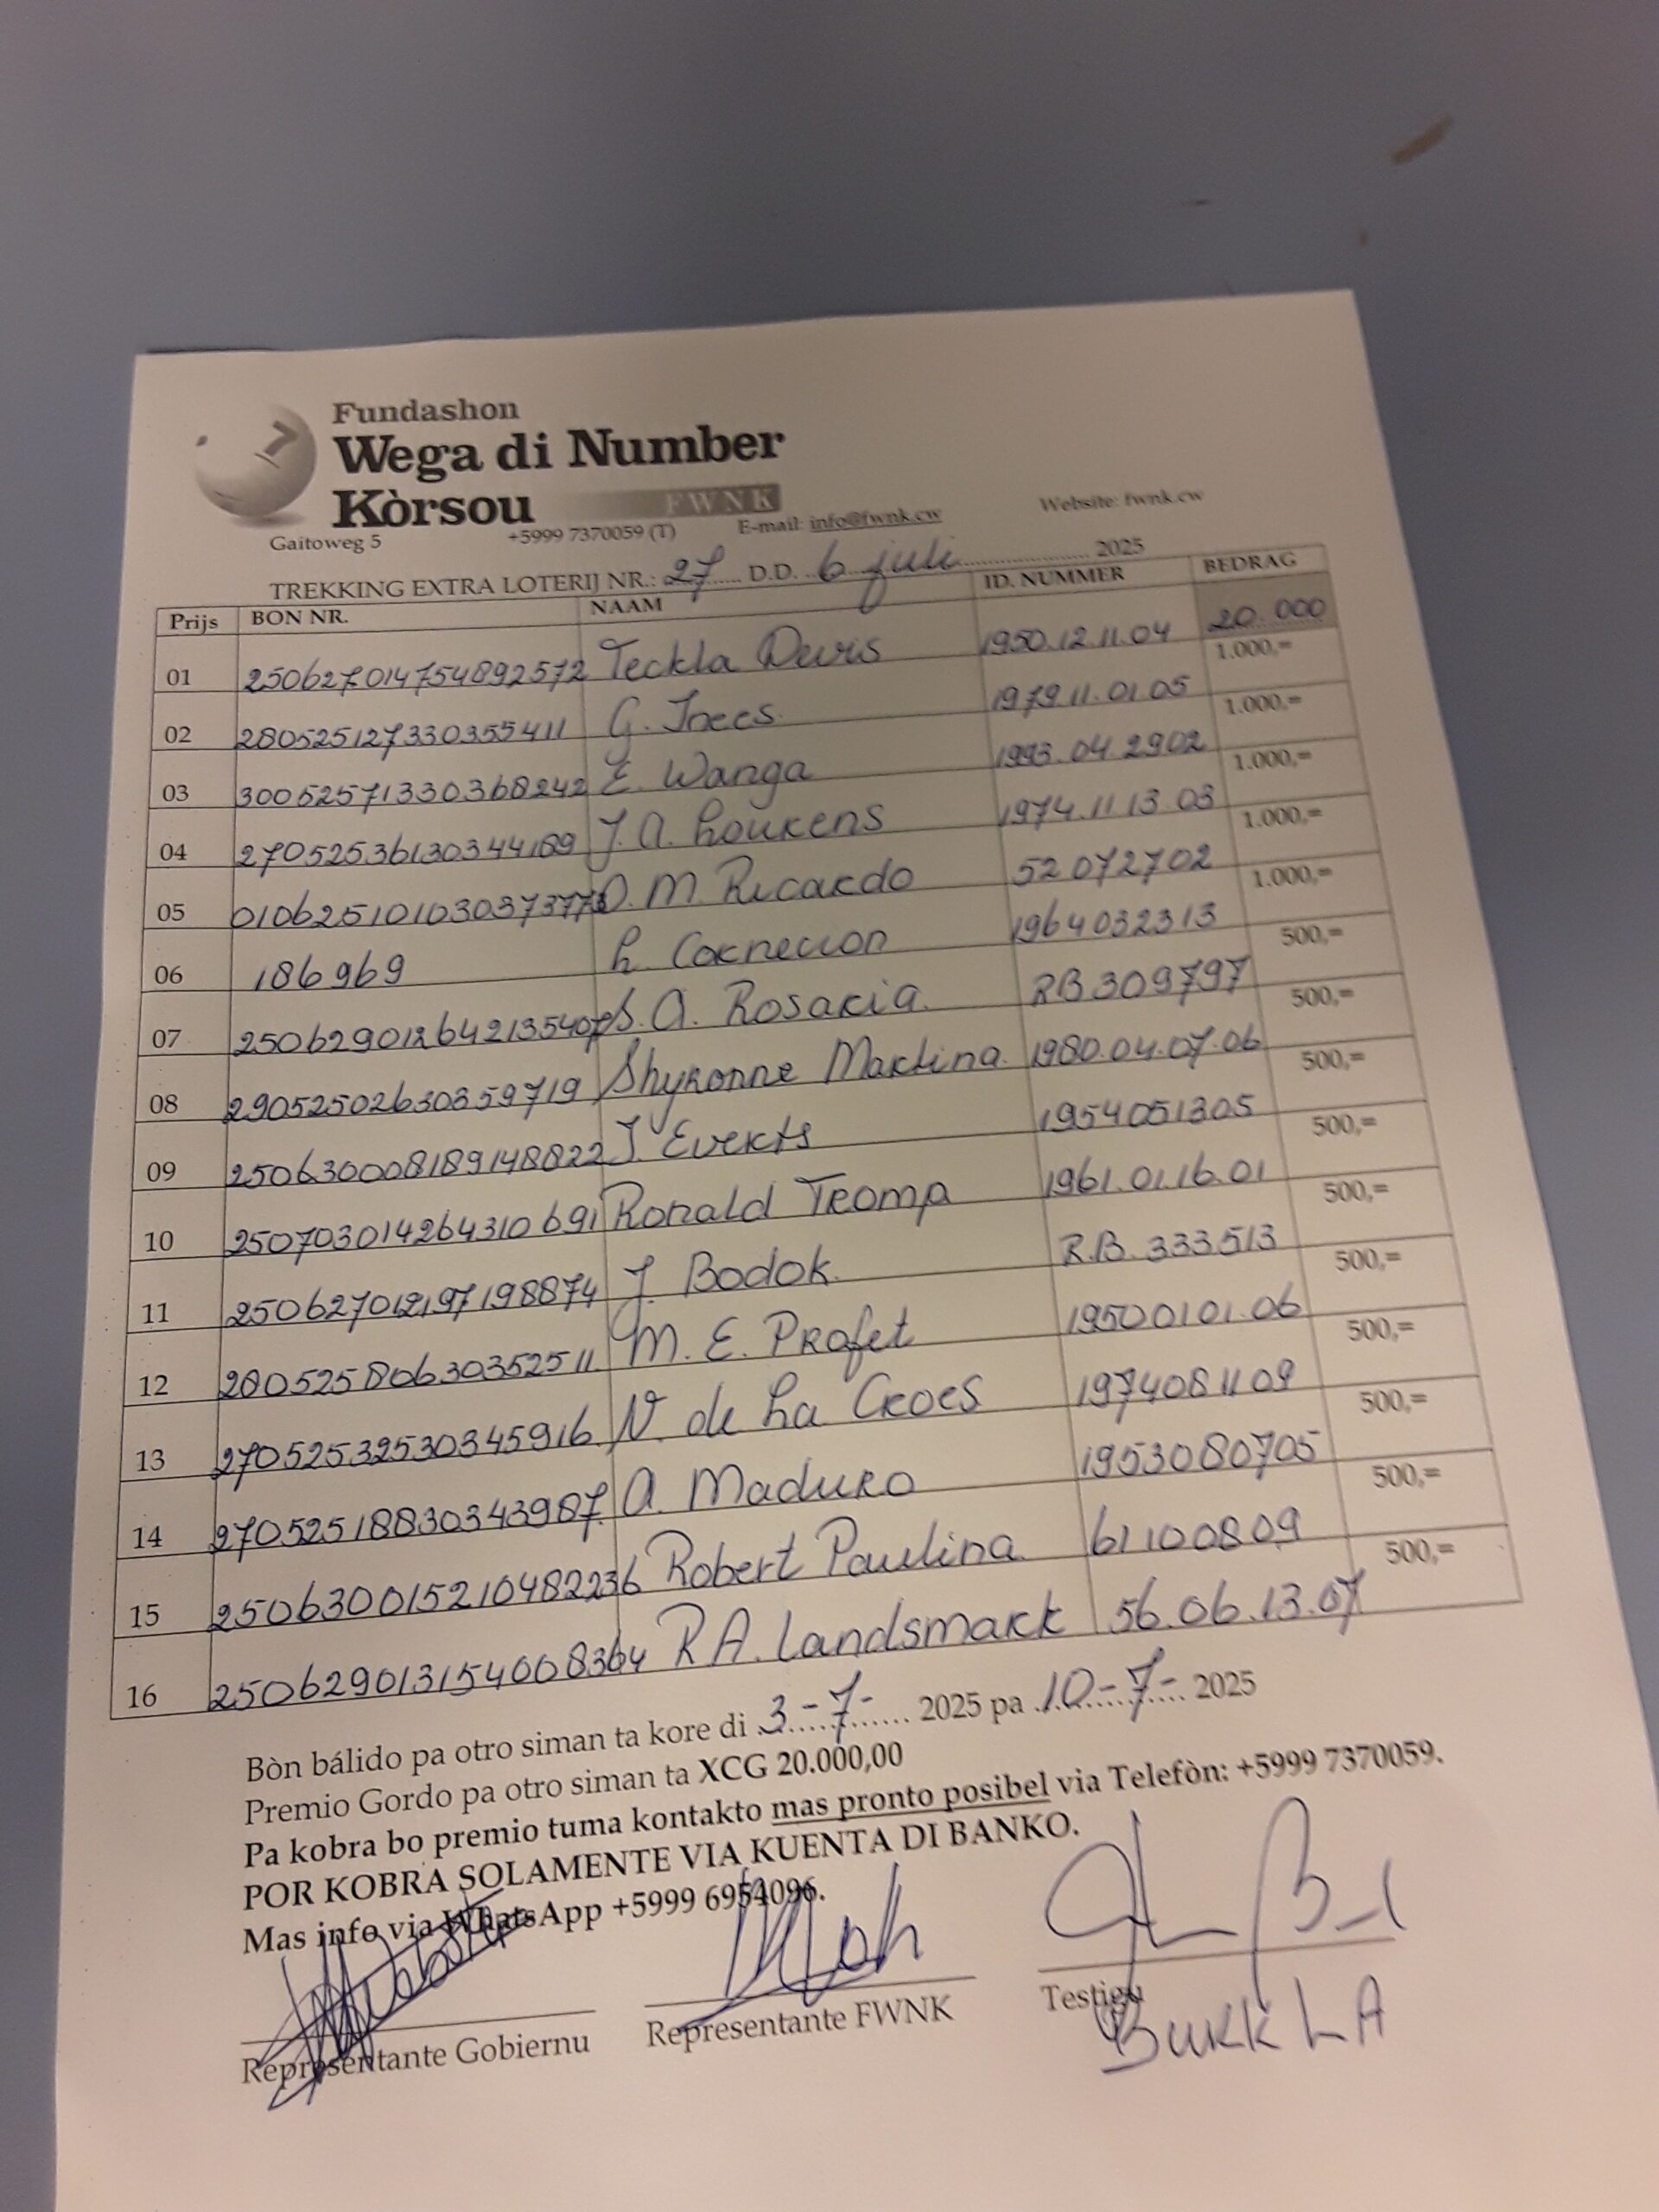 Fundashon
Wega di Number
Kòrsou FWNK
Gaitoweg 5 +5999 7370059 (T) E-mail: info@fwnk.cw Website: fwnk.cw
TREKKING EXTRA LOTERIJ NR.: 27 D.D. 6 juli 2025
Prijs BON NR. NAAM ID. NUMMER BEDRAG
01 2506270147754892572 Teckla 1950.12.11.04 20.000
02 280525127330355411 G. 1979.11.01.05 1.000,=
03 30052571330368242 E. Wanga 1993.04 2902 1.000,=
04 27052536130344189 J.A. Loukens 1974.11 13.03 1.000,=
05 M. Ricardo 52 072702 1.000,=
06 186969 L. 1964032313 1.000,=
07 S.A. Rosaria RB 309797 500,=
08 29052502630359719 Shyronne Martina 1980.04.07.06 500,=
09 250630008189148822 J. Everts 1954051305 500,=
10 250703014264310691 Ronald Tromp 1961.01.16.01 500,=
11 J. Bodok R.B. 333513 500,=
12 28052580630352511 M. E. Profet 19500101.06 500,=
13 27052532530345916 N. de La Croes 1974081109 500,=
14 27052518830343987 A. Maduro 1953080705 500,=
15 250630015210482236 Robert Paulina 61100809 500,=
16 250629013154008364 R A. Landsmark 56.06.13.07 500,=
Bòn bálido pa otro siman ta kore di 3-7- 2025 pa 10-7- 2025
Premio Gordo pa otro siman ta XCG 20.000,00
Pa kobra bo premio tuma kontakto mas pronto posibel via Telefòn: +5999 7370059.
POR KOBRA SOLAMENTE VIA KUENTA DI BANKO.
Mas info via WhatsApp +5999 6954096.
Representante Gobiernu Representante FWNK Testigu